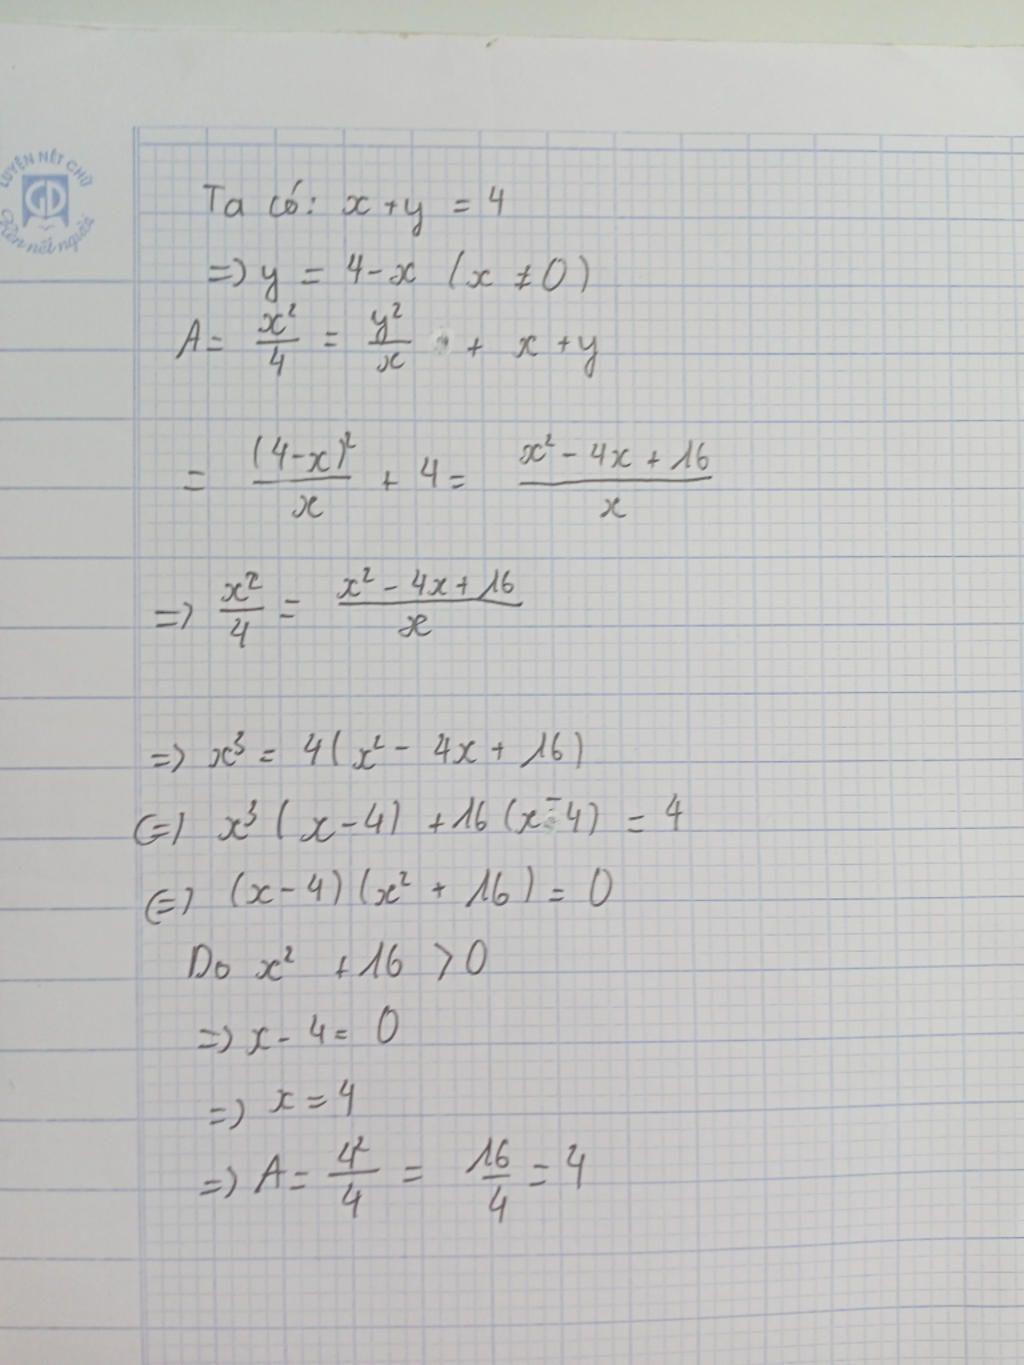 LUYỆN NÉT CHỮ
GD
Rèn nết người
Ta có: x + y = 4
=> y = 4 - x (x ≠ 0)
A = x²/4 = y²/x + x + y
= (4-x)²/x + 4 = (x² - 4x + 16)/x
=> x²/4 = (x² - 4x + 16)/x
=> x³ = 4(x² - 4x + 16)
(=) x³(x - 4) + 16(x - 4) = 4
(=) (x - 4)(x² + 16) = 0
Do x² + 16 > 0
=> x - 4 = 0
=> x = 4
=> A = 4²/4 = 16/4 = 4